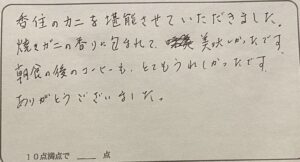 香住のカニを堪能させていただきました。
焼きガニの香りに包まれて、美味しかったです。
朝食の後のコーヒーも、とてもうれしかったです。
ありがとうございました。
10点満点で ＿＿ 点